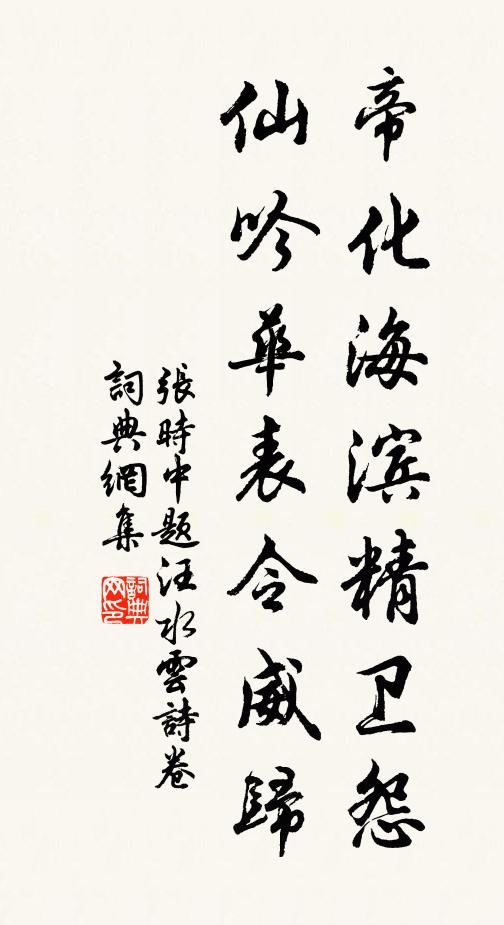 帝化海滨精卫怨
仙吟華表令威歸
張時中題汪水雲詩卷
詞典網集
詞典
网印